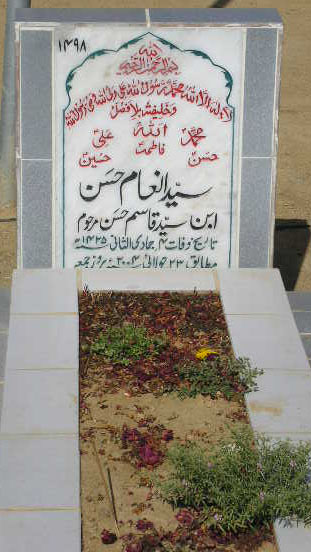 ۱۴۹۸
الله
بسم الله الرحمن الرحيم
لا اله الا الله محمد رسول الله علی ولی الله وصی رسول الله
وخلیفتہ بلا فصل
محمدؐ الله علیؑ
حسنؑ فاطمہؑ حسینؑ
سیّد انعام حسن
ابن سیّد قاسم حسن مرحوم
تاریخ وفات ۴ جمادی الثانی ۱۴۲۵ھ
مطابق ۲۳ جولائی ۲۰۰۴ء بروز جمعہ